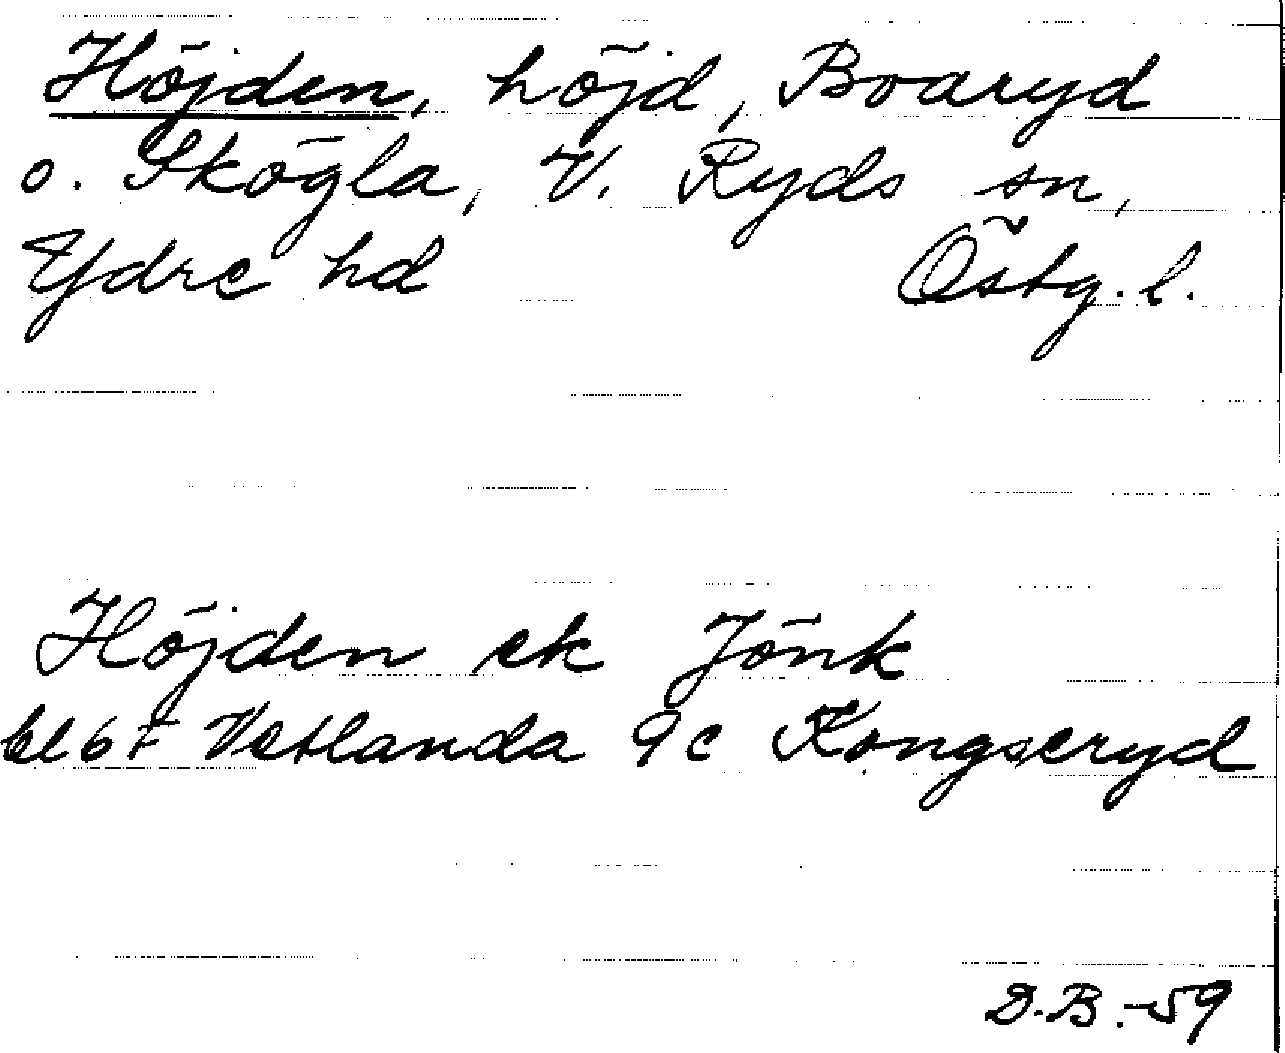 Höjden, höjd, Boaryd
o. Skögla, V. Ryds sn,
Ydre hd Östg. l.
Höjden ek Jönk
bl 67 Vetlanda 9c Kongseryd
D.B.-59